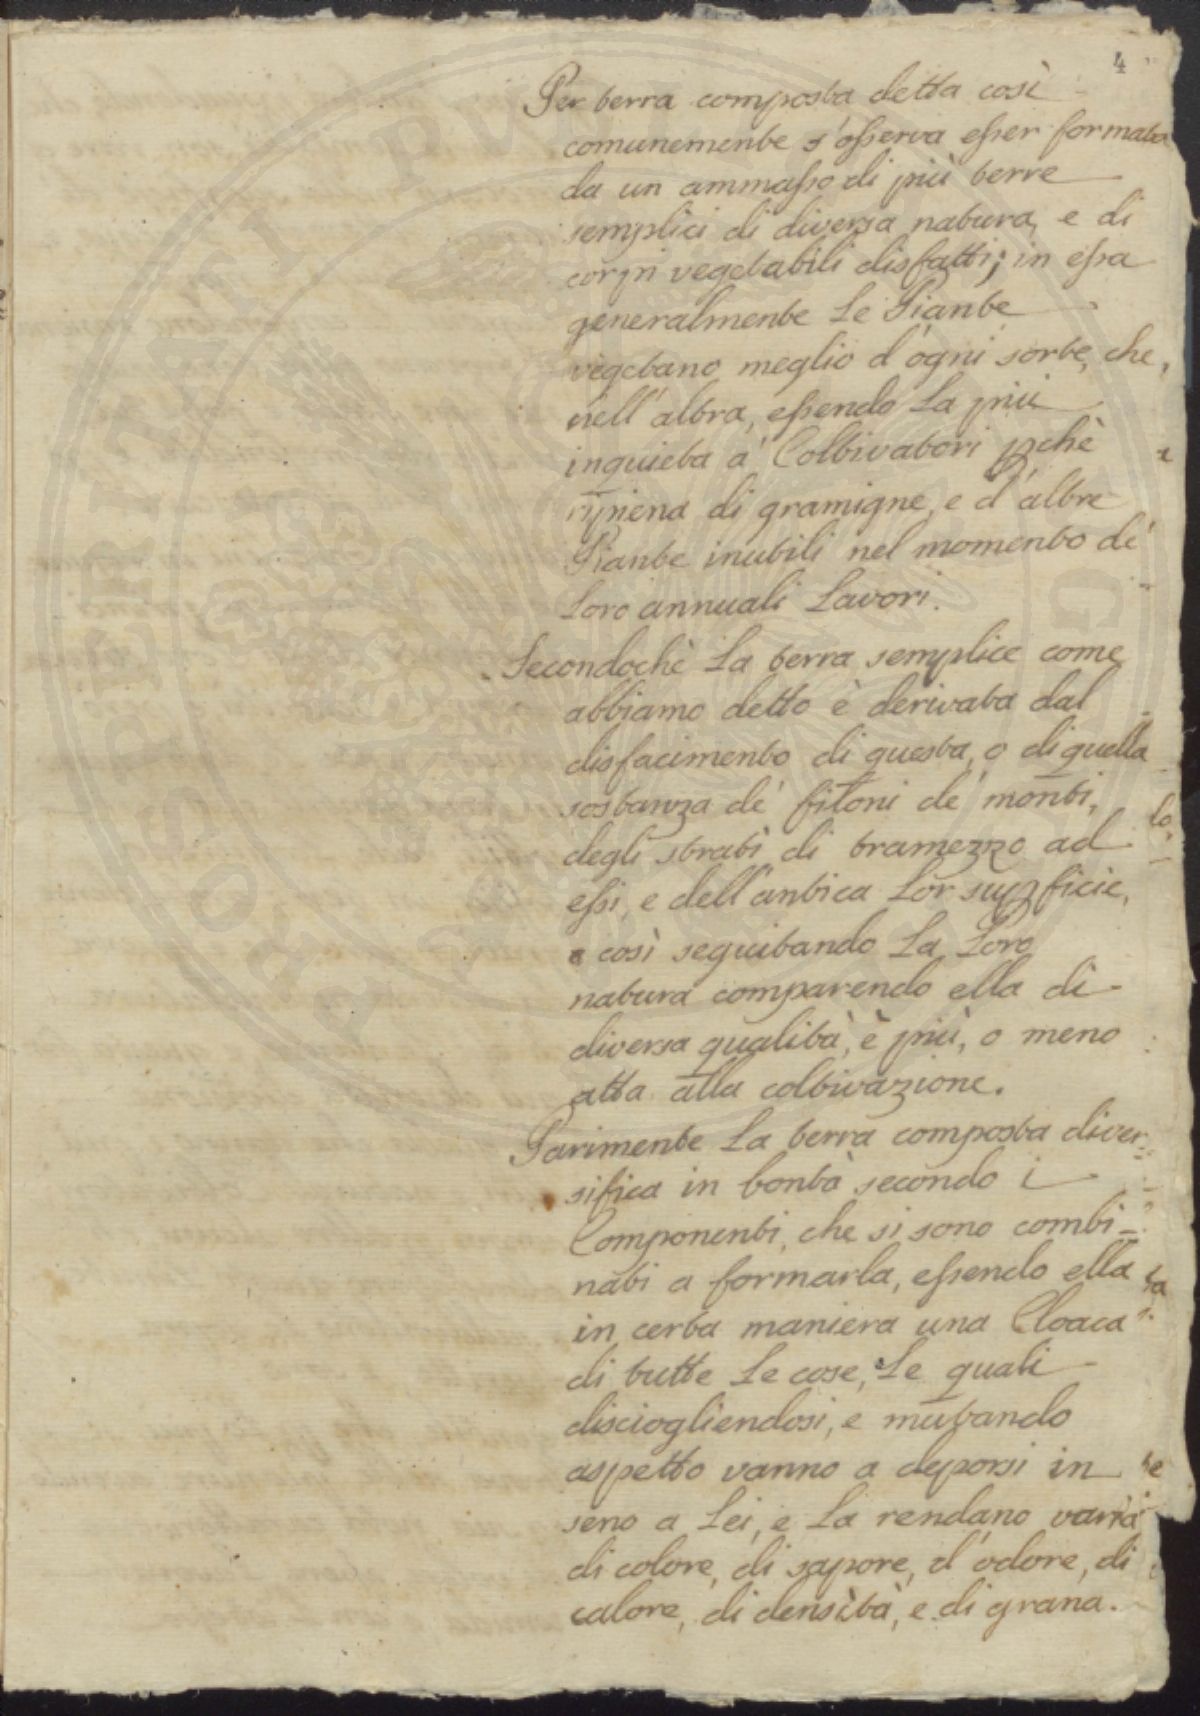 4
Per terra composta detta così
comunemente s'osserva esser formata
da un ammasso di più terre
semplici di diversa natura, e di
corpi vegetabili disfatti; in essa
generalmente le Piante
vegetano meglio d'ogni sorte, che
nell'altra, essendo la più
inquieta a' Coltivatori pchè
ripiena di gramigne, e d'altre
Piante inutili nel momento de'
loro annuali lavori.
Secondochè la terra semplice come
abbiamo detto è derivata dal
disfacimento di questa, o di quella
sostanza de' filoni de' monti,
degli strati di tramezzo ad
essi, e dell'antica lor supficie,
e così seguitando la loro
natura comparendo ella di
diversa qualità, è più, o meno
atta alla coltivazione.
Parimente la terra composta diver-
sifica in bontà secondo i
Componenti, che si sono combi=
nati a formarla, essendo ella
in certa maniera una Cloaca
di tutte le cose, le quali
disciogliendosi, e mutando
aspetto vanno a deporsi in
seno a lei, e la rendano varia
di colore, di sapore, d'odore, di
calore, di densità, e di grana.